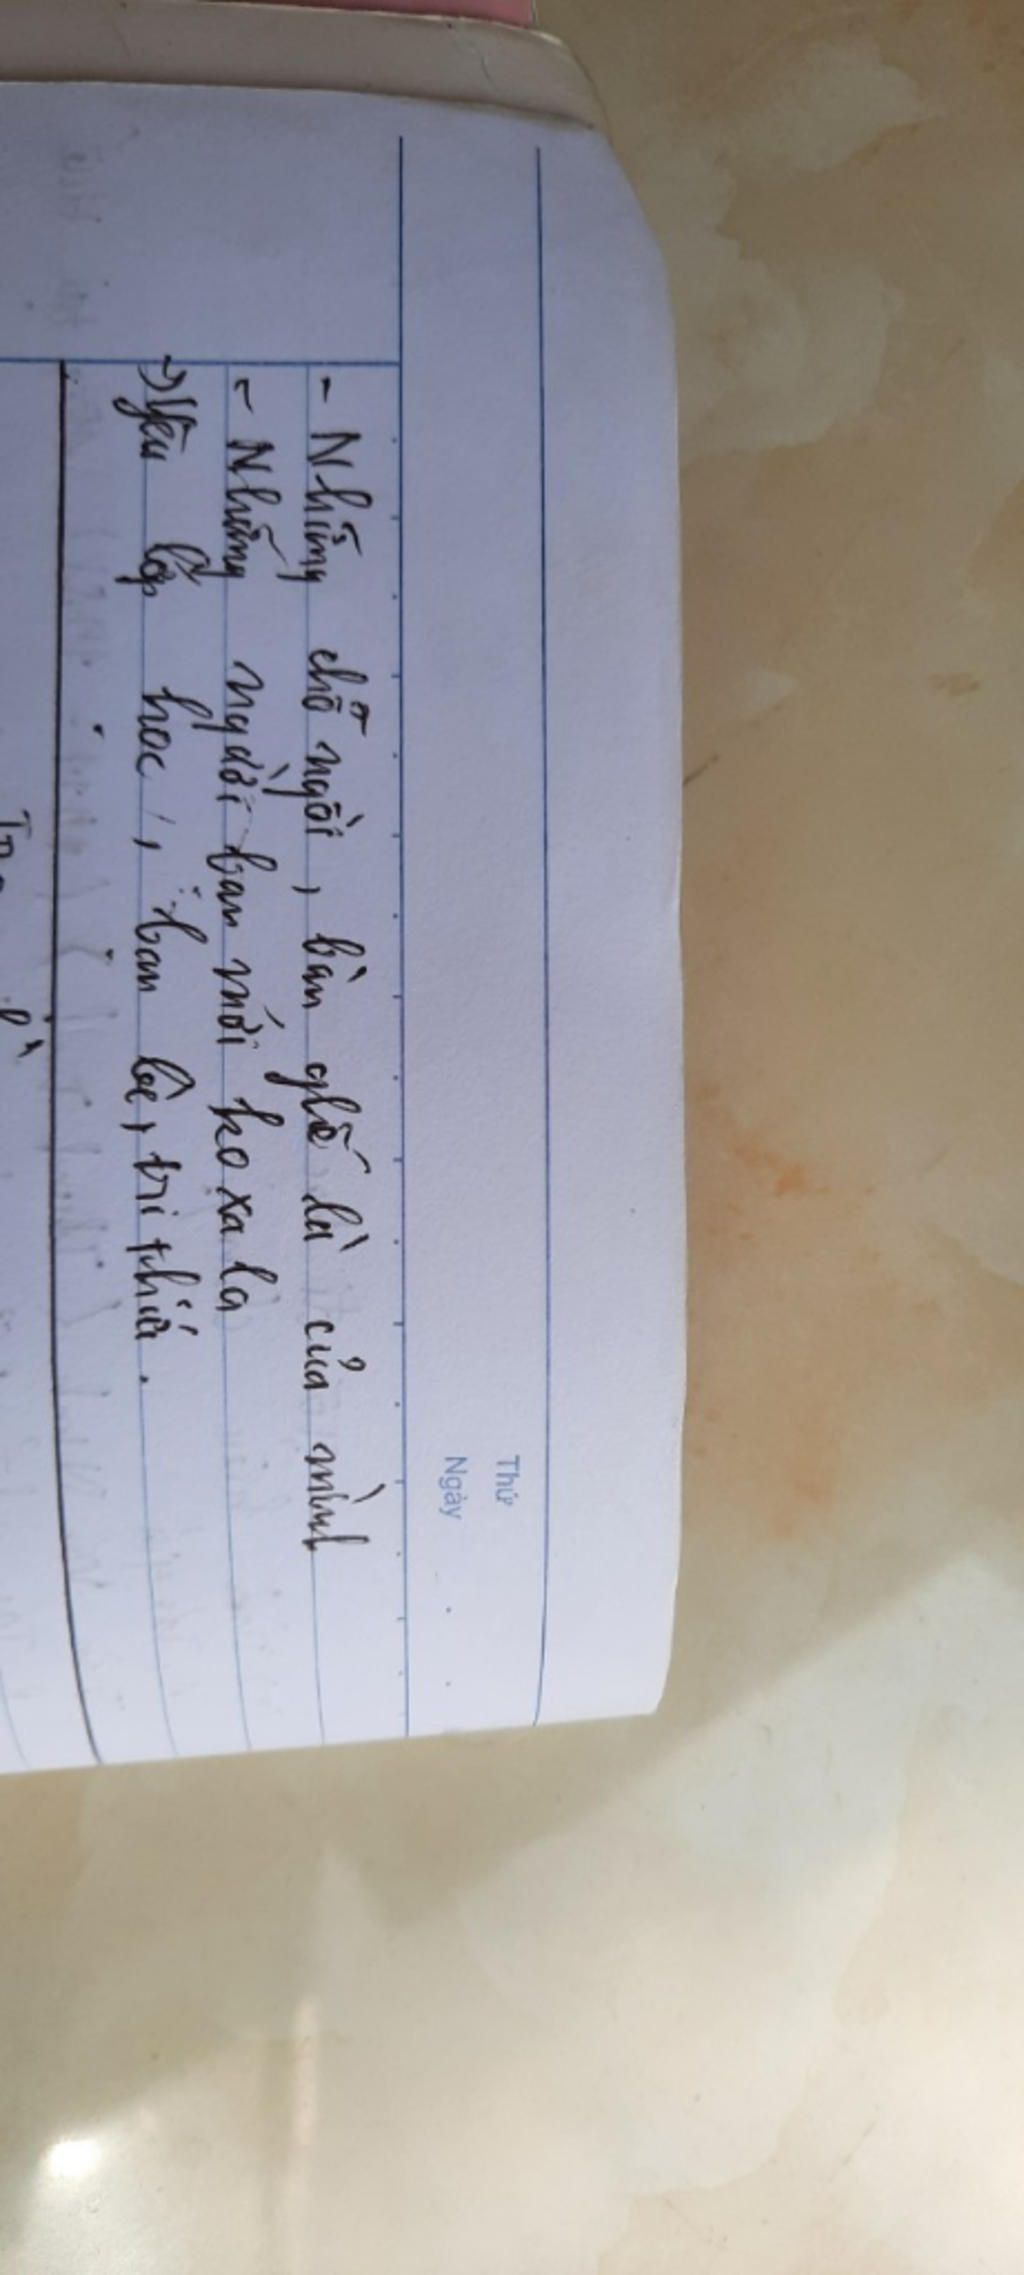 Thứ
Ngày
- Những chỗ ngồi, bàn ghế là của mình
- Những người bạn mới ko xa lạ
→ Yêu lớp học, bạn bè, tri thức.